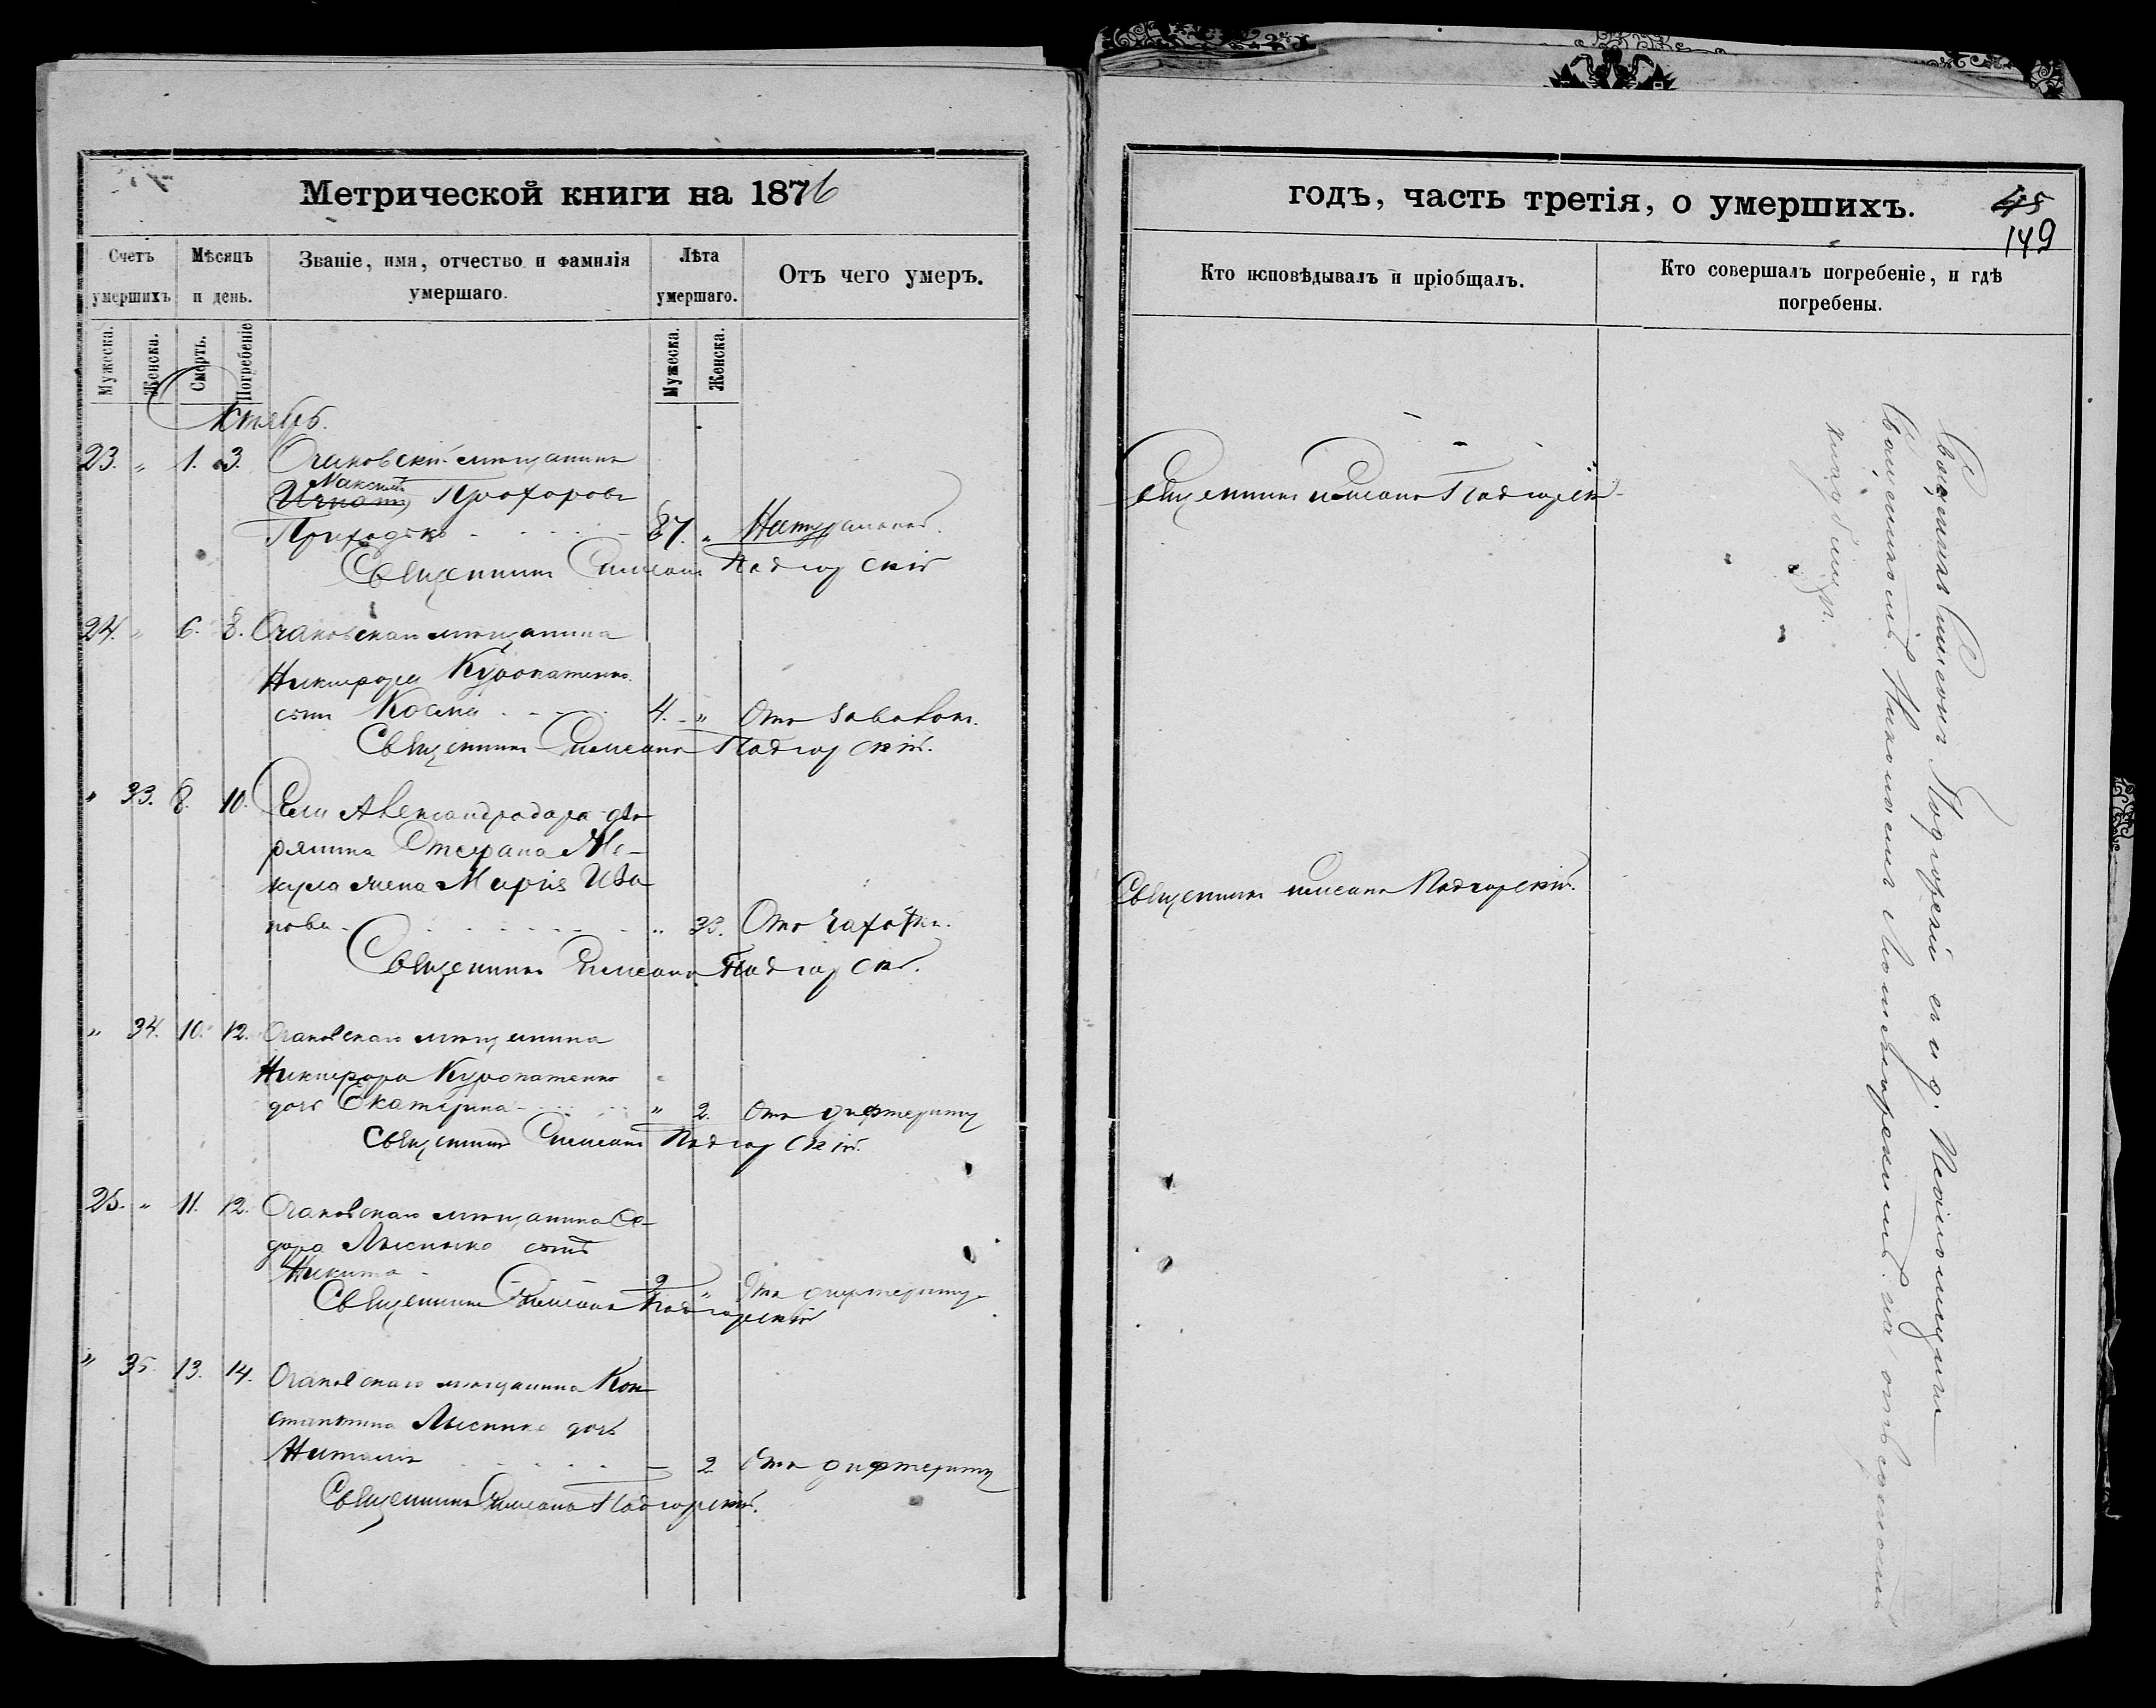 Метрической книги на 1876
Счетъ умершихъ
Мѣсяцъ и день.
Званіе, имя, отчество и фамилія умершаго.
Лѣта умершаго.
Отъ чего умеръ.
Мужеска.
Женска.
Смерть.
Погребеніе
Мужеска.
Женска.
Октябрь.
23. „ 1. 3. Очаковскій мѣщанинъ
Максимъ
Игнатъ Прохоровъ
Приходько 87. „ Натуральной.
Священникъ Симеонъ Подгорскій
24. „ 6. 8. Очаковскаго мѣщанина
Никифора Куропатенко
сынъ Косма 4. „ Отъ
Священникъ Симеонъ Подгорскій.
„ 33. 8. 10. Села Александродара дво
рянина Стефана
жена Марія Ива
нова „ 33. Отъ чахотки.
Священникъ Симеонъ Подгорскій.
„ 34. 10. 12. Очаковскаго мѣщанина
Никифора Куропатенко
дочь Екатерина „ 2. Отъ дифтериту
Священникъ Симеонъ Подгорскій.
25. „ 11. 12. Очаковскаго мѣщанина
Лысенко сынъ
Никита 2 „ Отъ дифтериту
Священникъ Симеонъ Подгорскій
„ 35. 13. 14. Очаковскаго мѣщанина Кон
стантина Лысенко дочь
Наталія — 2 Отъ дифтериту
Священникъ Симеонъ Подгорскій.
годъ, часть третія, о умершихъ.
45
149
Кто исповѣдывалъ и пріобщалъ.
Кто совершалъ погребеніе, и гдѣ погребены.
Священникъ Симеонъ Подгорскій
Священникъ Симеонъ Подгорскій.
Священникъ Симеонъ Подгорскій съ и. д. Псаломщика
Николаемъ на
кладбищѣ.